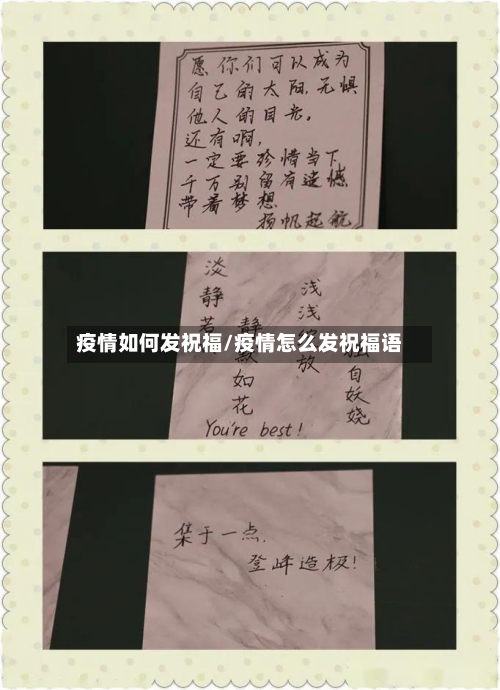 愿你们可以成为
自己的太阳，无惧
他人的目光。
还有啊，
一定要珍惜当下
千万别留有遗憾
带着梦想
扬帆起航
疫情如何发祝福/疫情怎么发祝福语
淡静若
静
如花
浅浅
放
自妖娆
You're best!
集于一点，
登峰造极！